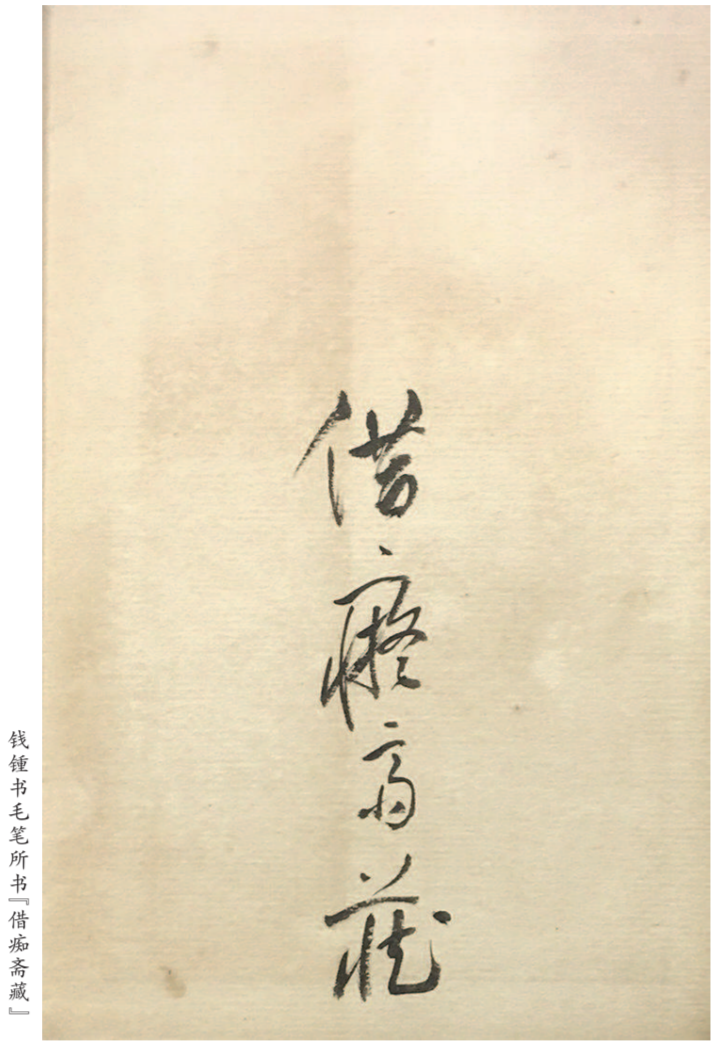 借癡斋藏
钱锺书毛笔所书『借痴斋藏』